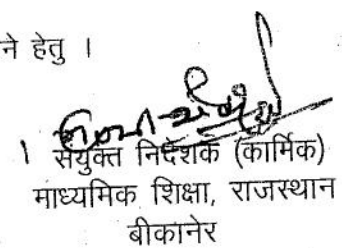 ने हेतु ।
। संयुक्त निदेशक (कार्मिक)
माध्यमिक शिक्षा, राजस्थान
बीकानेर